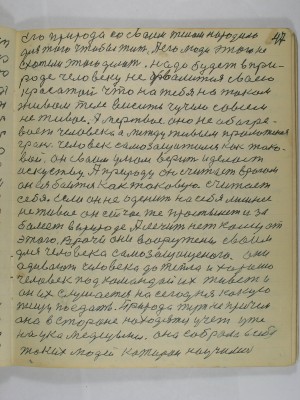 47
Его природа со своим телом народила
для того чтобы жить. А его люди этого не
хотели этого делать. надо будет в при-
роде человеку не хвалится своею
красотой что на тебя на таком
живом теле висит чужим совсем
не живое. А мертвое оно не обогре-
вает человека а между живым
гран. человек самозащитник как тако-
вой. он своим умом верит и делает
искуству. А природу он считает врагом
он ея боится как таковую считает
себя. если он не оденет на себя лишнее
не живое он сейчас же простынет и за
болеет в природе. А лечить нет кому от
этого. Врачи они вооружены своим
для человека самозащищеного. они
одевают человека до тепла и хорошо
человек под командой их живет и
он их слушается на сегодня какую
пищу поедать. А природа тут не причем
она в стороне находится учет уже
наука медецына. она собрала в себе
таких людей которая научила